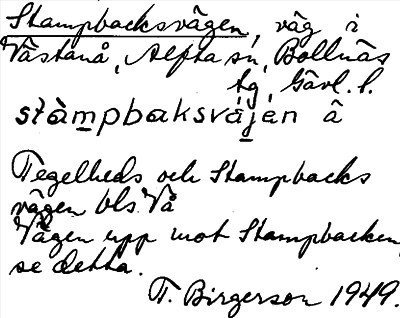 Stampbacksvägen, väg i
Västanå, Alfta sn, Bollnäs
tg, Gävl. l.
stàmpbaksvä́jen â
Tegelheds och Stampbacks
vägen bls Vå
Vägen upp mot Stampbacken,
se detta.
T. Birgerson 1949.